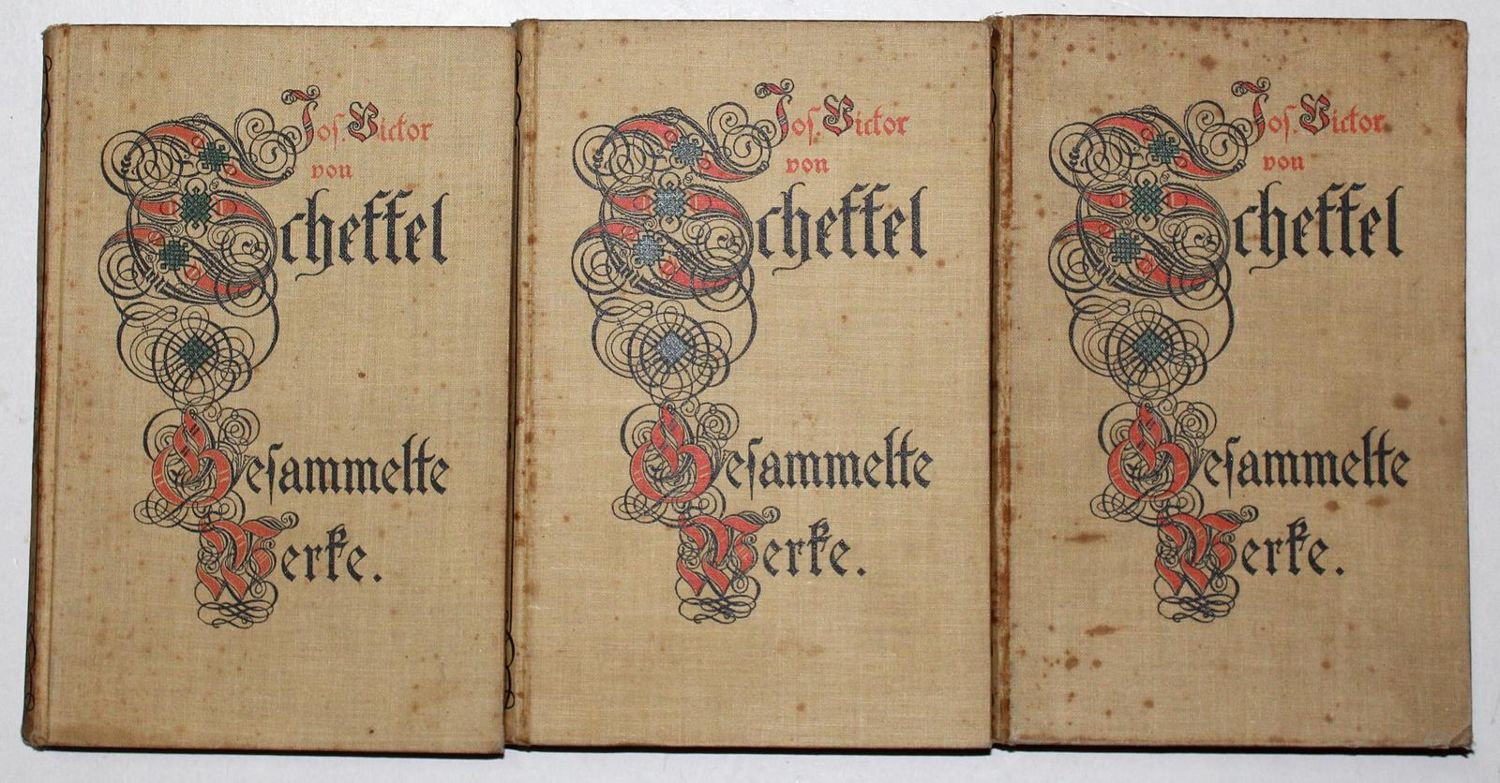 Jos. Victor
von
Scheffel
Geſammelte
Werke.
Jos. Victor
von
Scheffel
Geſammelte
Werke.
Jos. Victor
von
Scheffel
Geſammelte
Werke.